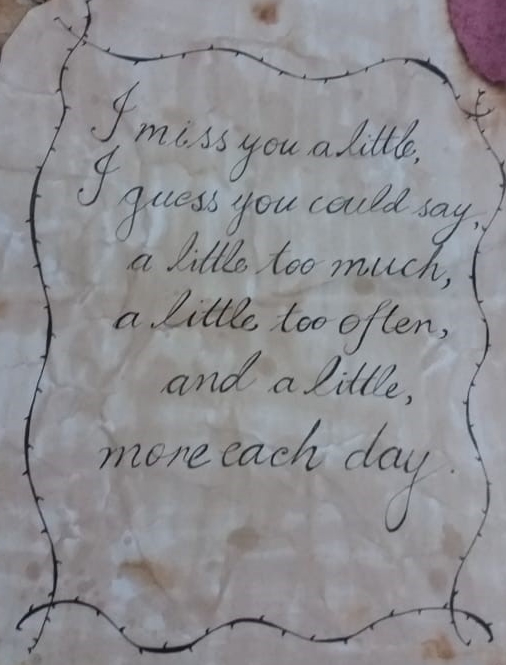 I miss you a little,
I guess you could say,
a little too much,
a little too often,
and a little,
more each day.